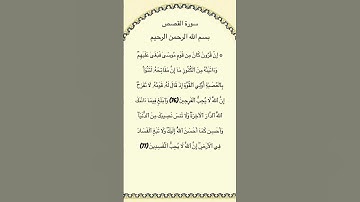 سورة القصص
بسم الله الرحمن الرحيم
۞ إِنَّ قَٰرُونَ كَانَ مِن قَوْمِ مُوسَىٰ فَبَغَىٰ عَلَيْهِمْ
وَءَاتَيْنَٰهُ مِنَ الْكُنُوزِ مَا إِنَّ مَفَاتِحَهُۥ لَتَنُوأُ
بِالْعُصْبَةِ أُوْلِي الْقُوَّةِ إِذْ قَالَ لَهُۥ قَوْمُهُۥ لَا تَفْرَحْ
إِنَّ اللَّهَ لَا يُحِبُّ الْفَرِحِينَ (76) وَابْتَغِ فِيمَا ءَاتَىٰكَ
اللَّهُ الدَّارَ الْأَخِرَةَ وَلَا تَنسَ نَصِيبَكَ مِنَ الدُّنْيَا
وَأَحْسِن كَمَا أَحْسَنَ اللَّهُ إِلَيْكَ وَلَا تَبْغِ الْفَسَادَ
فِي الْأَرْضِ إِنَّ اللَّهَ لَا يُحِبُّ الْمُفْسِدِينَ (77)